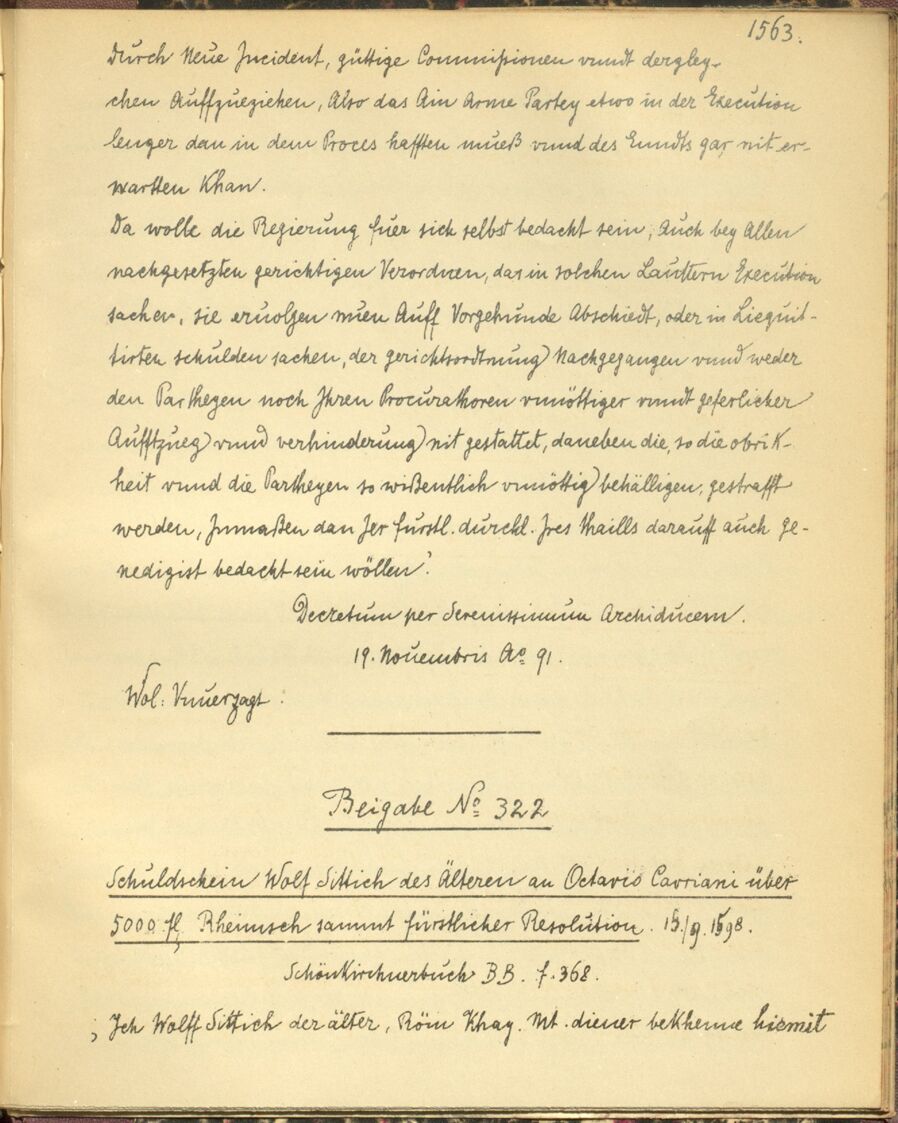 1563.
Durch Neue Incident, güttige Commißionen vnndt dergley-
chen Auffzueziehen, Also das Ain Arme Partey etwo in der Execution
lenger dan in dem Proces hafften mueß vnnd des Enndts gar nit er-
wartten Khan.
Da wolle die Regierung fuer sich selbst bedacht sein, Auch bey Allen
nachgesetzten gerichtigen Verordnen, das in solchen Lauttern Execution
sachen, sie eruolgen nuen Auff Vorgehunde Abschiedt, oder in Liequit-
tirten schulden sachen, der gerichtsordtnung Nachgegangen vnnd weder
den Partheyen noch Ihren Procurathoren vnnöttiger vnndt geferlicher
Auffzueg vnnd verhinderung nit gestattet, daneben die, so die obrik-
heit vnnd die Partheyen so wißentlich vnnöttig behälligen, gestrafft
werden, Inmaßen dan Jer fürstl. durchl. Jres thaills darauff auch ge-
nedigist bedacht sein wöllen.
Decretum per Serenissimum Archiducem.
19. Nouembris Ao 91.
Wol: Vnuerzagt.
Beigabe No 322
Schuldschein Wolf Sittich des Älteren an Octavio Cavriani über
5000 fl, Rheinisch sammt fürstlicher Resolution. 15./9. 1598.
Schönkirchnerbuch BB. f. 368.
Ich Wolff Sittich der älter, Röm Khay. Mt. diener bekhenne hiemit